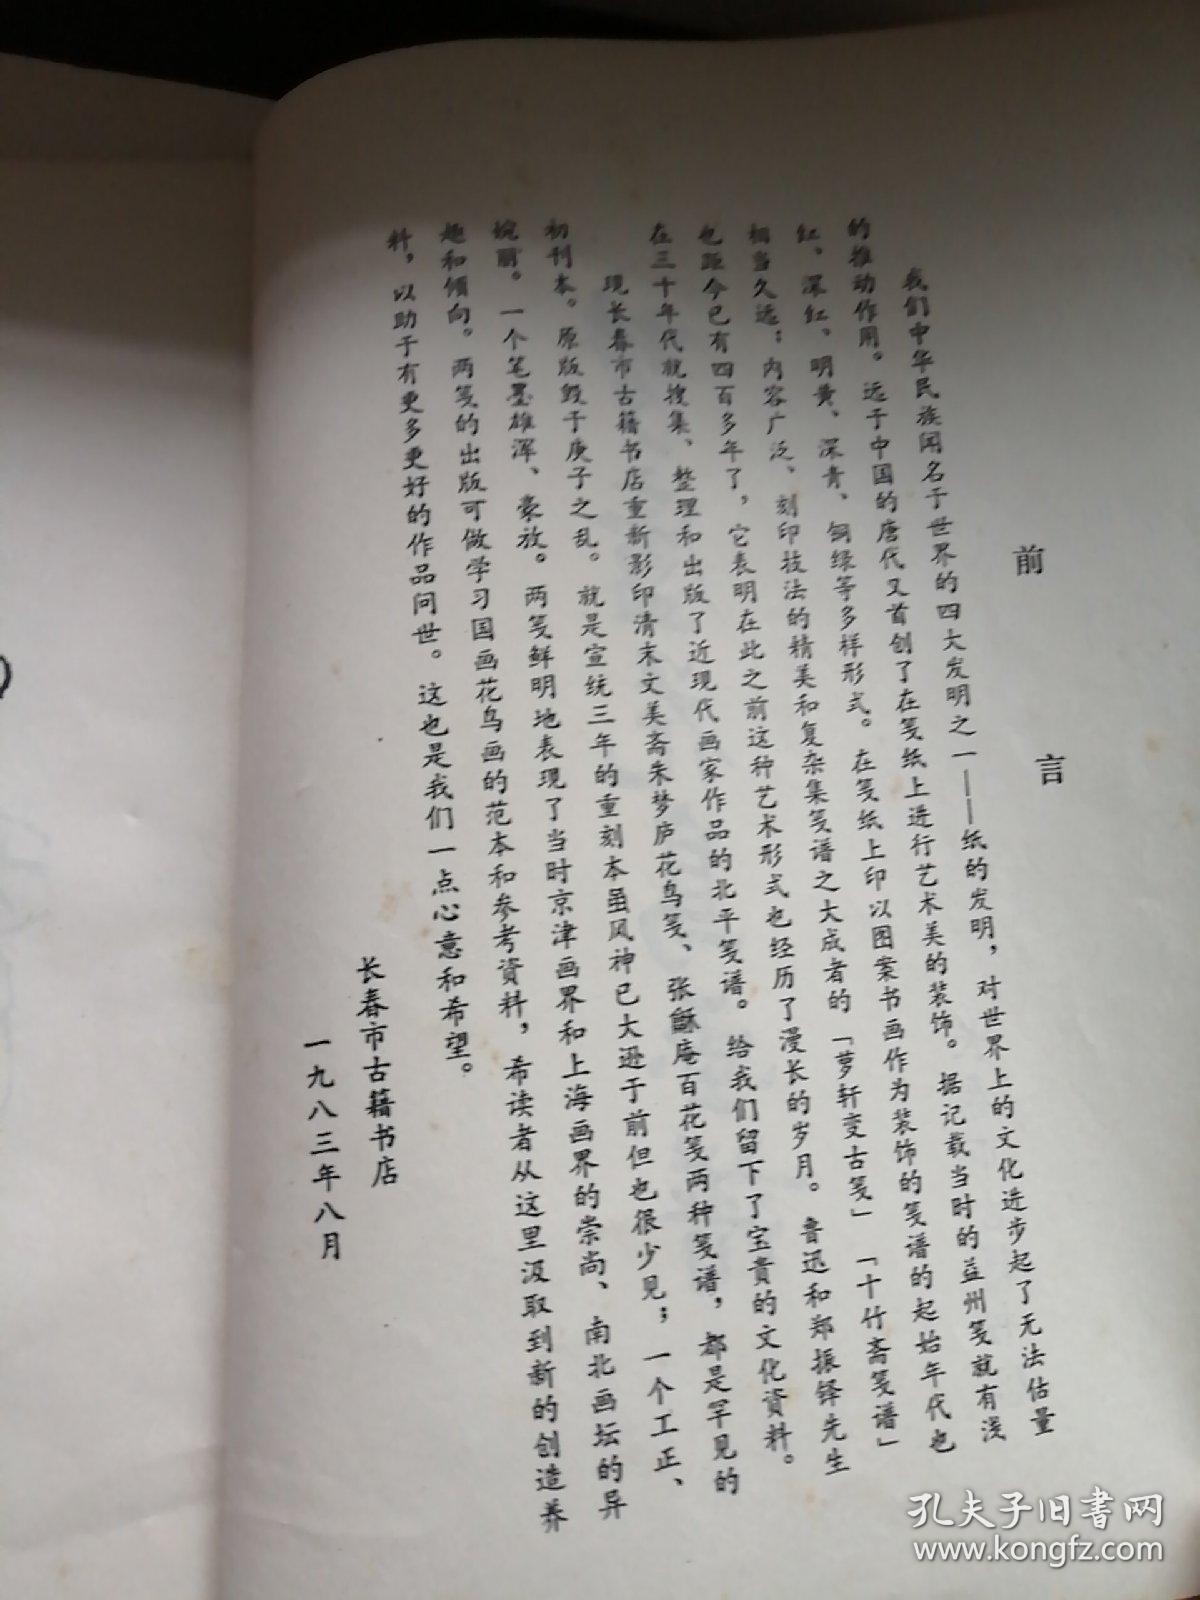 前言
我们中华民族闻名于世界的四大发明之一——纸的发明，对世界上的文化进步起了无法估量
的推动作用。远于中国的唐代又首创了在笺纸上进行艺术美的装饰。据记载当时的益州笺就有浅
红、深红、明黄、深青、铜绿等多样形式。在笺纸上印以图案书画作为装饰的笺谱的起始年代也
相当久远；内容广泛、刻印技法的精美和复杂集笺谱之大成者的「萝轩变古笺」「十竹斋笺谱」
也距今已有四百多年了，它表明在此之前这种艺术形式也经历了漫长的岁月。鲁迅和郑振铎先生
在三十年代就搜集、整理和出版了近现代画家作品的北平笺谱。给我们留下了宝贵的文化資料。
现长春市古籍书店重新影印清末文美斋朱梦庐花鸟笺、张龢庵百花笺两种笺谱，都是罕见的
初刊本。原版毁于庚子之乱。就是宣统三年的重刻本虽风神已大逊于前但也很少见；一个工正、
婉丽。一个笔墨雄浑、豪放。两笺鲜明地表现了当时京津画界和上海画界的崇尚、南北画坛的异
趣和倾向。两笺的出版可做学习国画花鸟画的范本和参考資料，希读者从这里汲取到新的创造养
料，以助于有更多更好的作品问世。这也是我们一点心意和希望。
长春市古籍书店
一九八三年八月
孔夫子旧书网
www.kongfz.com